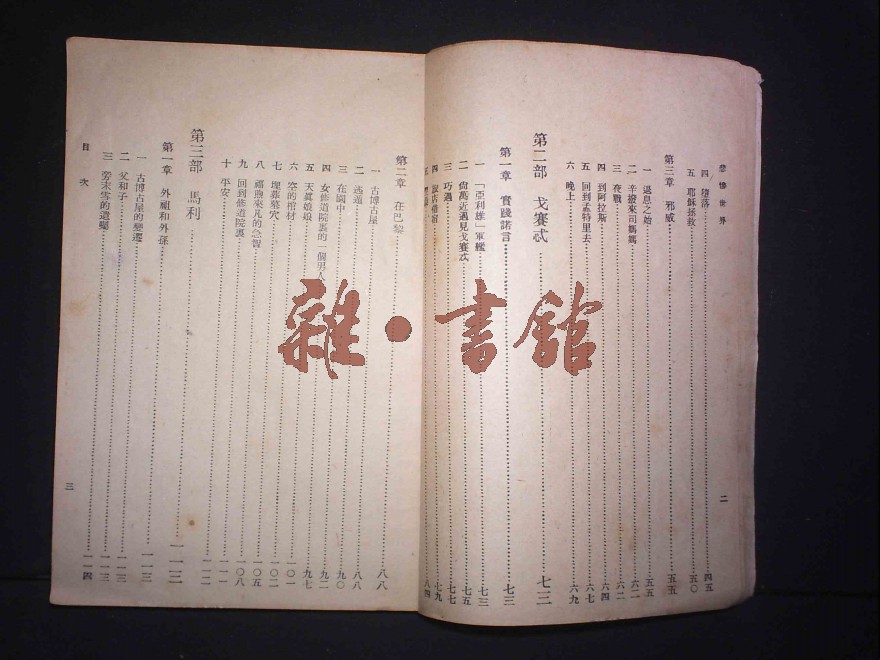 悲慘世界
四 墮落 四五
五 耶穌拯救 五〇
第三章 邪威 五五
一 退息之始 五五
二 辛撥來司媽媽 六二
三 夜戰 六二
四 到阿拉斯 六四
五 回到孟特里去 六七
六 晚上 六九
第二部 戈賽忒 七三
第一章 實踐諾言 七三
一 「亞利雄」軍艦 七三
二 尙萬近遇見戈賽忒 七五
三 巧遇 七七
四 投店借宿 七九
五 八四
二
第二章 在巴黎 八八
一 古博古屋 八八
二 逃遁 八八
三 在園中 九〇
四 女修道院裏的一個男人 九二
五 天眞娘娘 九七
六 空的棺材 一〇一
七 埋葬墓穴 一〇二
八 福煦來凡的急智 一〇五
九 回到修道院裏 一〇八
十 平安 一一一
第三部 馬利 一一三
第一章 外祖和外孫
一 古博古屋的變遷 一一三
二 父和子 一一三
三 旁末雪的遺囑 一一四
目次
三
雜·書館